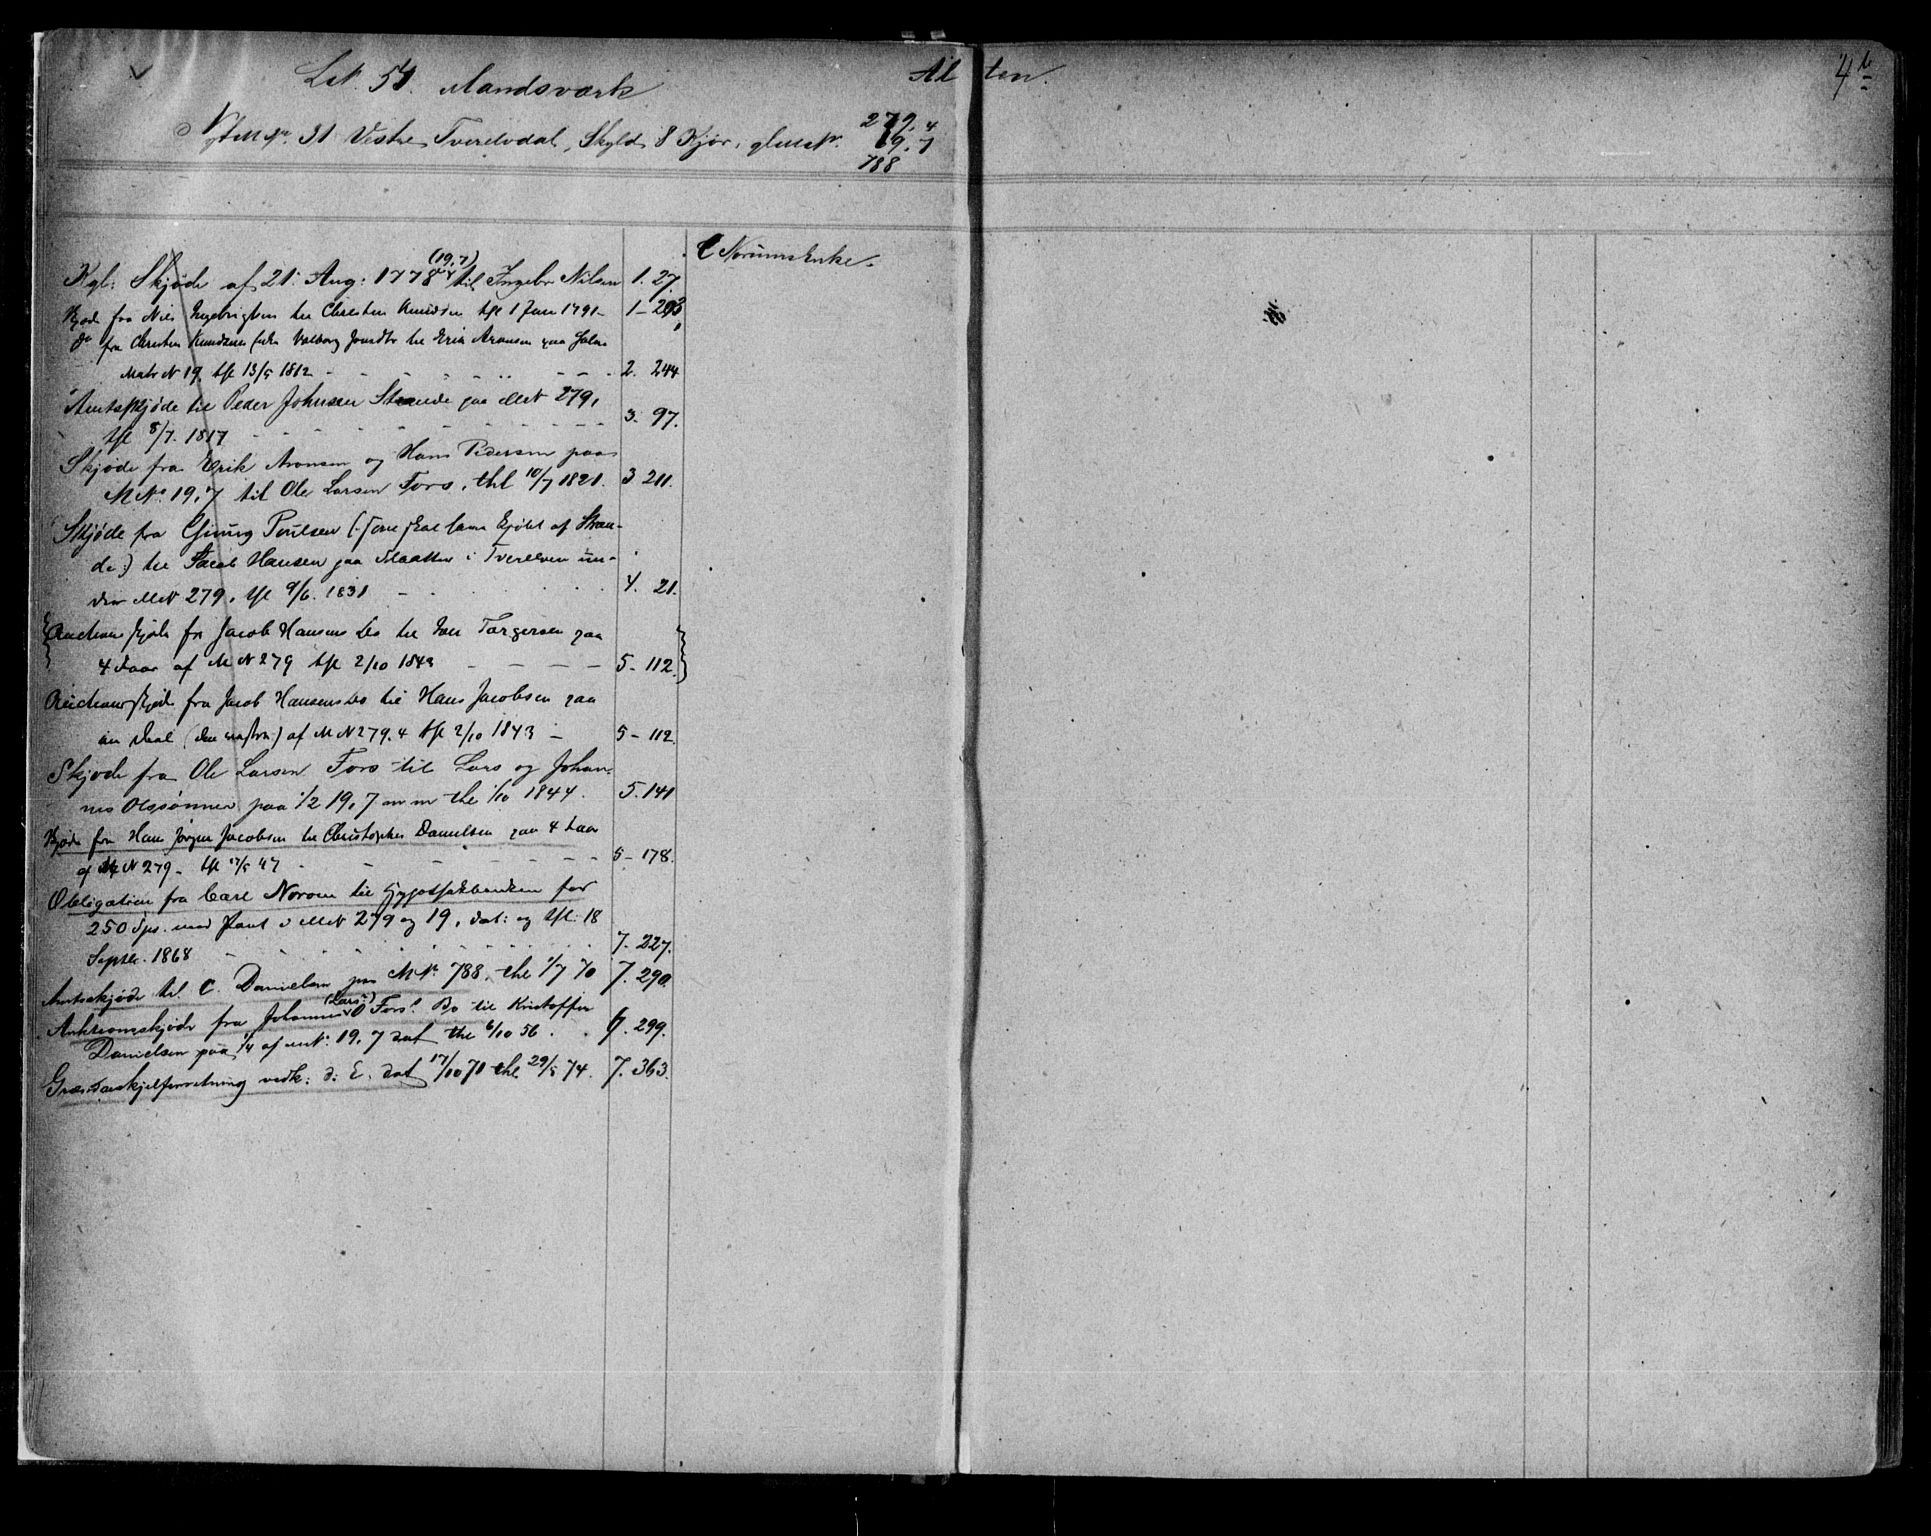 Alten.
4b
Lat. 54. Mandsværk
279.4
Nyt M Nr. 31 Vestre Tverelvdal, Skyld 8 Kjør, gl M Nr. 19.7
788
C Norums Enke.
(19.7)
Kgl: Skjøde af 21. Aug: 1778 til Ingebr Nilsen 1. 27.
Skjøde fra Niels Ingebrigtsen til Christen Knudsen tgl 1 Juni 1791 1 - 203
do fra Christen Knudsens Enke Valborg Jonsdtr til Erik Aronsen paa halve
Matr N 19. tgl 13/5 1812 2. 244
Amtsskjøde til Peder Johnsen Strande paa M N 279,
tgl 8/7. 1817 3. 97.
Skjøde fra Erik Aronsen og Hans Pedersen paa
M No. 19,7 til Ole Larsen Fors, thl 10/7 1821. 3 211.
Skjøde fra Poulsen kjøbt af Stran-
de:) til Jacob Hansen paa Slaatten i Tverelven un-
der M N 279, tgl 9/6. 1831 4. 21.
Auctions skjøde fra Jacob Hansens Bo til Torgersen paa
4 daar af M N 279 tgl 2/10 1843 5 - 112.
Auctionsskjøde fra Jacob Hansens Bo til Hans Jacobsen paa
en deel af M N 279.4 tgl 2/10 1843 5 - 112.
Skjøde fra Ole Larsen Fors til Lars og Johan-
nes Olssønner paa 1/2 19,7 m m thl 1/10 1844. 5. 141
Skjøde fra Hans Jørgen Jacobsen til Christopher Danielsen paa 4 daar
af M N 279 - tgl 17/5 47 5 - 178.
Obligation fra Carl Norom til Hypothekbanken for
250 Spd. med Pant i M N 279 og 19, dat: og tgl: 18
Septbr. 1868 7. 227.
Amtsskjøde til C. Danielsen paa M Nr. 788. thl 1/7 70 7. 290
(Lars')
Auktionsskjøde fra Johannes O Fors' Bo til Kristoffer
Danielsen paa 1/4 af mnr. 19,7 dat thl 6/10 56. 6. 299.
Grændseskjelforretning vedk: d: E. dat 17/10 71 thl 29/5 74. 7. 363.